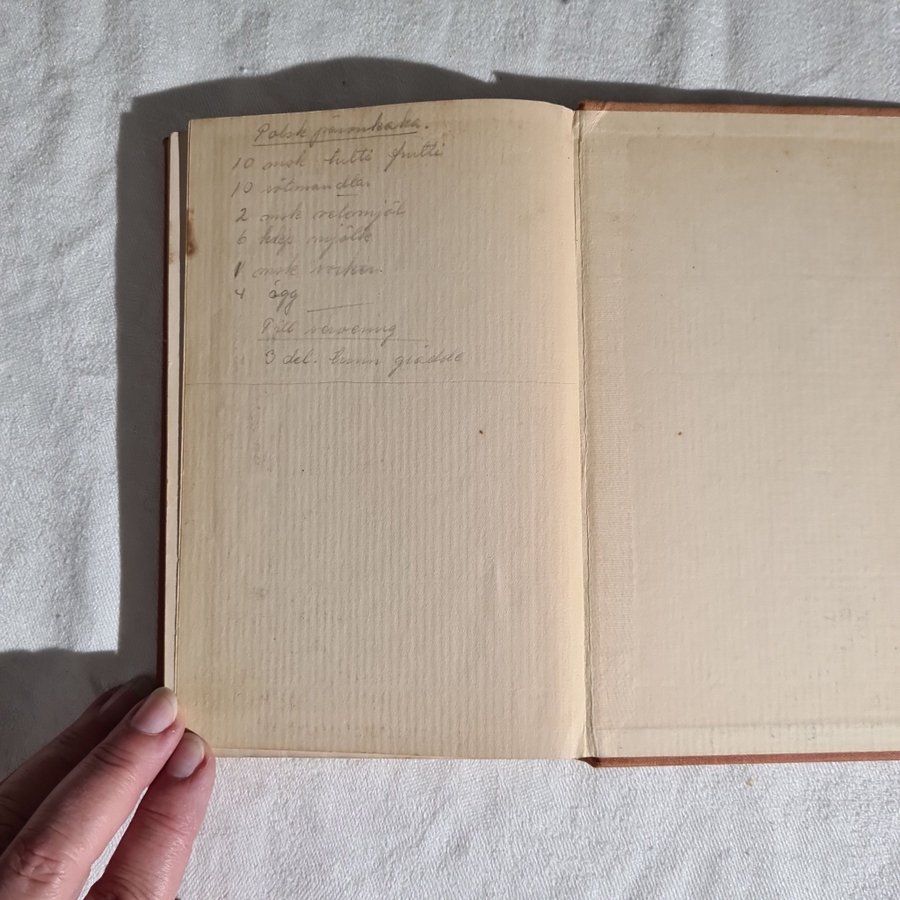 Polsk päronkaka.
10 msk tutti frutti
10 sötmandlar
2 msk vetemjöl
6 kkp mjölk
1 msk socker
4 ägg
Till servering
3 del. tunn grädde